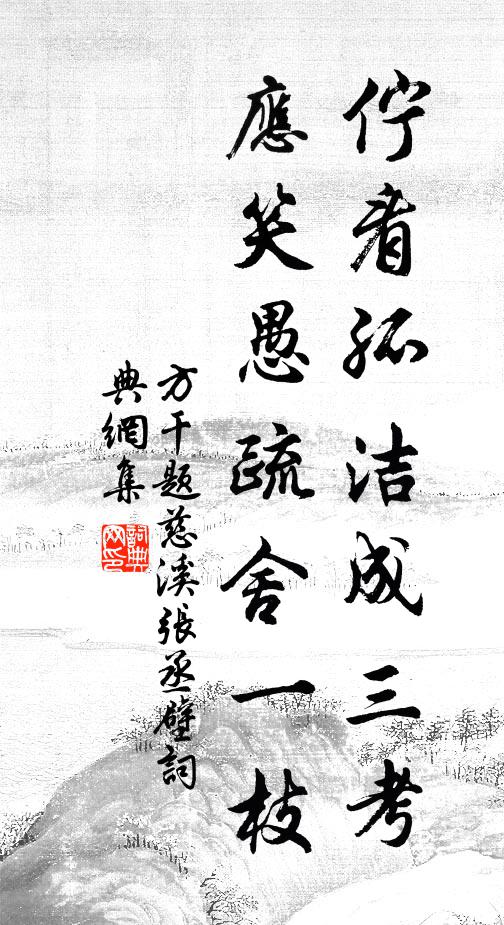 佇看孤洁成三考
應笑愚疏舍一枝
方干題慈溪張丞壁詞
典網集
詞典网印